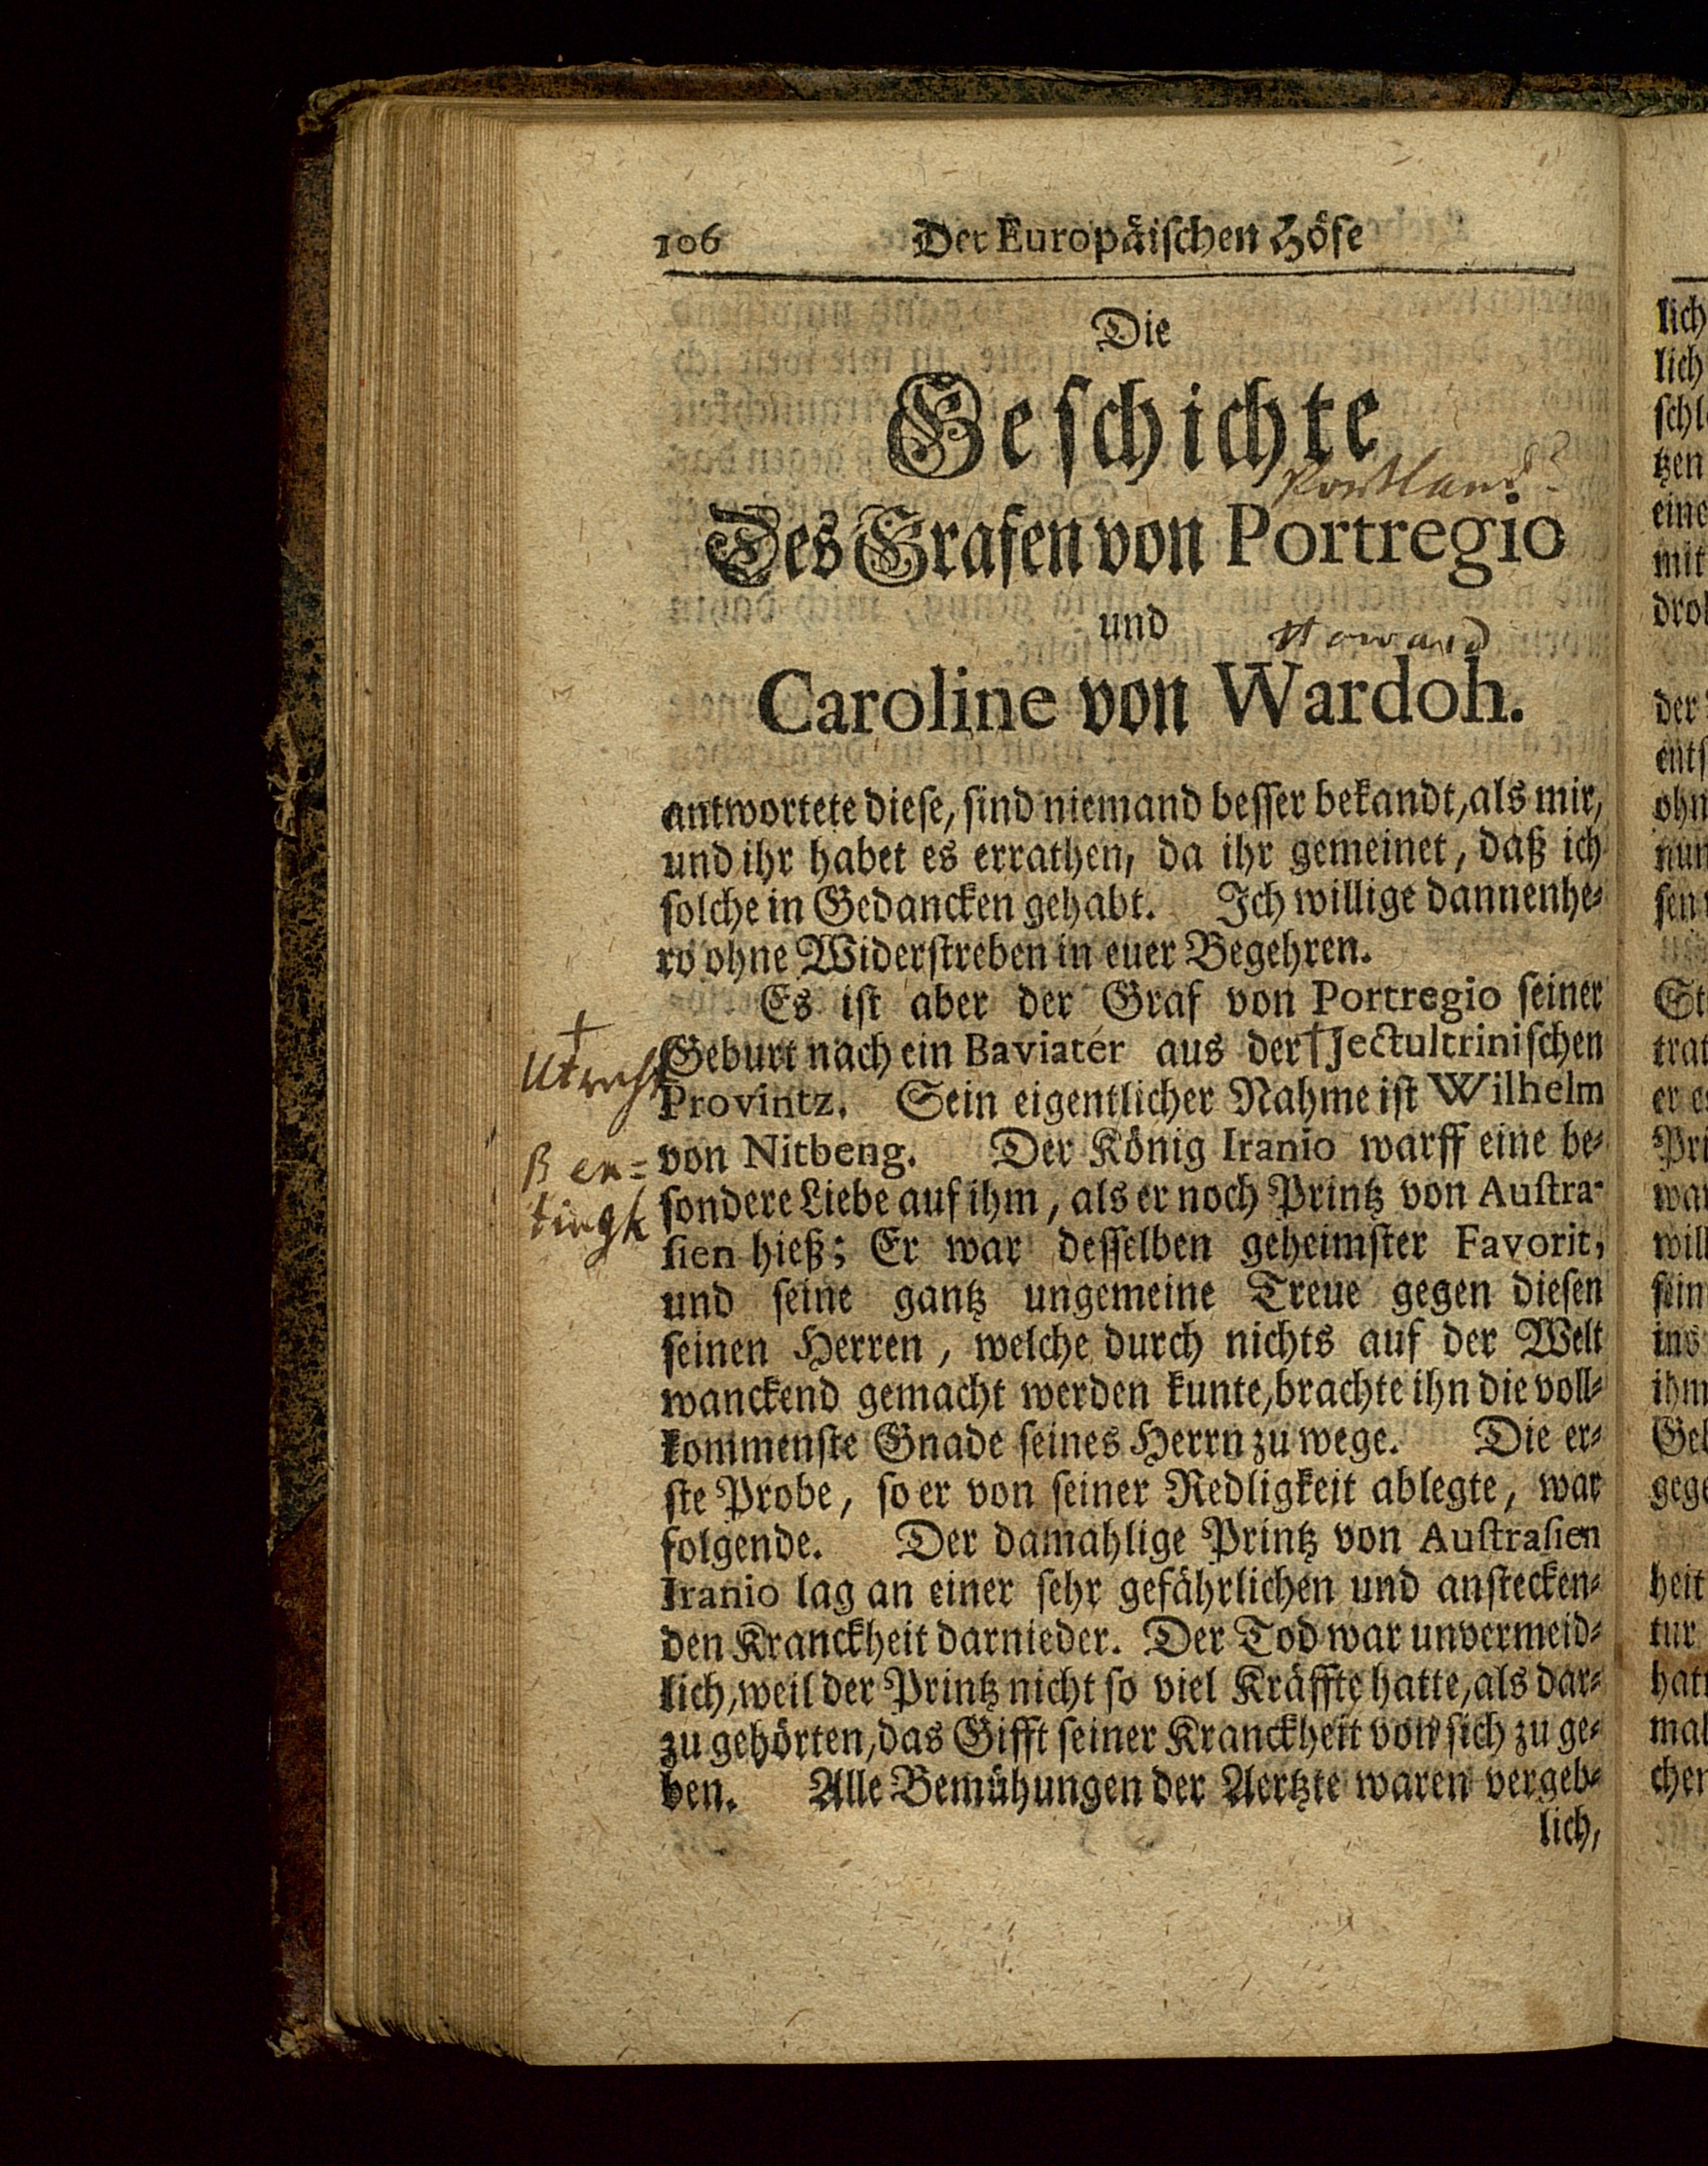 106 Der Europäischen Höfe
Die
Geschichte
Portland?
Des Grafen von Portregio
und
Howard
Caroline von Wardoh.
antwortete diese, sind niemand besser bekandt, als mir,
und ihr habet es errathen, da ihr gemeinet, daß ich
solche in Gedancken gehabt. Ich willige dannenhe-
ro ohne Widerstreben in euer Begehren.
Es ist aber der Graf von Portregio seiner
Geburt nach ein Baviater aus der † Jectultrinischen
† Utrecht
Provintz. Sein eigentlicher Nahme ist Wilhelm
von Nitbeng. Der König Iranio warff eine be-
Ben=
tingk
sondere Liebe auf ihm, als er noch Printz von Austra-
sien hieß; Er war desselben geheimster Favorit,
und seine gantz ungemeine Treue gegen diesen
seinen Herren, welche durch nichts auf der Welt
wanckend gemacht werden kunte, brachte ihn die voll-
kommenste Gnade seines Herrn zu wege. Die er-
ste Probe, so er von seiner Redligkeit ablegte, war
folgende. Der damahlige Printz von Australien
Iranio lag an einer sehr gefährlichen und anstecken-
den Kranckheit darnieder. Der Tod war unvermeid-
lich, weil der Printz nicht so viel Kräffte hatte, als dar-
zu gehörten, das Gifft seiner Kranckheit von sich zu ge-
ben. Alle Bemühungen der Aertzte waren vergeb-
lich,